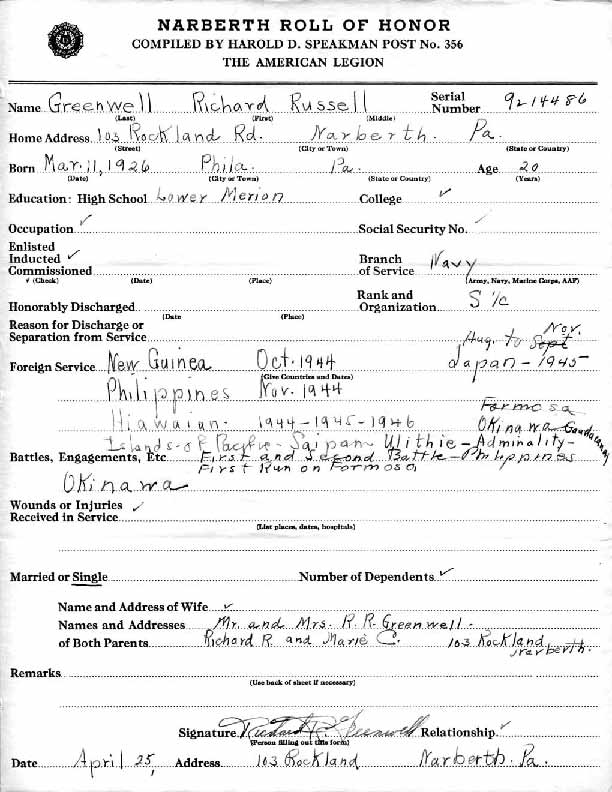 NARBERTH ROLL OF HONOR
COMPILED BY HAROLD D. SPEAKMAN POST No. 356
THE AMERICAN LEGION
Name Greenwell Richard Russell Serial Number 9214486
(Last) (First) (Middle)
Home Address 103 Rockland Rd. Narberth. Pa.
(Street) (City or Town) (State or Country)
Born Mar. 11, 1926 Phila. Pa. Age 20
(Date) (City or Town) (State or Country) (Years)
Education: High School Lower Merion College ✓
Occupation ✓ Social Security No. ✓
Enlisted
Inducted ✓ Branch of Service Navy
Commissioned
✓ (Check) (Date) (Place) (Army, Navy, Marine Corps, AAF)
Honorably Discharged Rank and Organization S 1/c
(Date (Place)
Reason for Discharge or
Separation from Service Aug. to Sept Nov.
Foreign Service New Guinea Oct. 1944 Japan - 1945
(Give Countries and Dates)
Philippines Nov. 1944
Formosa
Hiawaian. 1944-1945-1946 Okinawa
Islands-of Pacific- Saipan Ulithie - Adminality-
Battles, Engagements, Etc. First and Second Battle - Philippines
First Run on Formosa
Okinawa
Wounds or Injuries
Received in Service ✓
(List places, dates, hospitals)
Married or Single Number of Dependents ✓
Name and Address of Wife ✓
Names and Addresses Mr. and Mrs. R. R. Greenwell.
of Both Parents Richard R. and Marie C. 103 Rockland
Narberth.
Remarks
(Use back of sheet if necessary)
Signature Richard R. Greenwell Relationship. ✓
(Person filling out this form)
Date April 25, Address 103 Rockland Narberth. Pa.